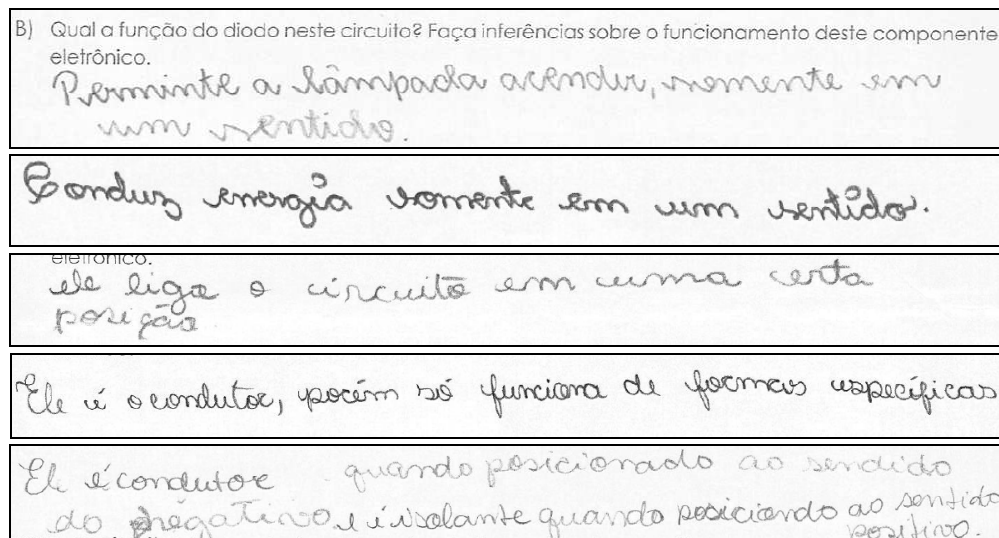 B) Qual a função do diodo neste circuito? Faça inferências sobre o funcionamento deste componente
eletrônico.
Perminte a lâmpada acender, somente em
um sentido.
Conduz energia somente em um sentido.
eletrônico.
ele liga o circuito em cuma certa
posição
Ele é o condutor, porém só funciona de formas especificas
Ele é condutor quando posicionado ao sendido
do negativo e é isolante quando posiciondo ao sentido
positivo.